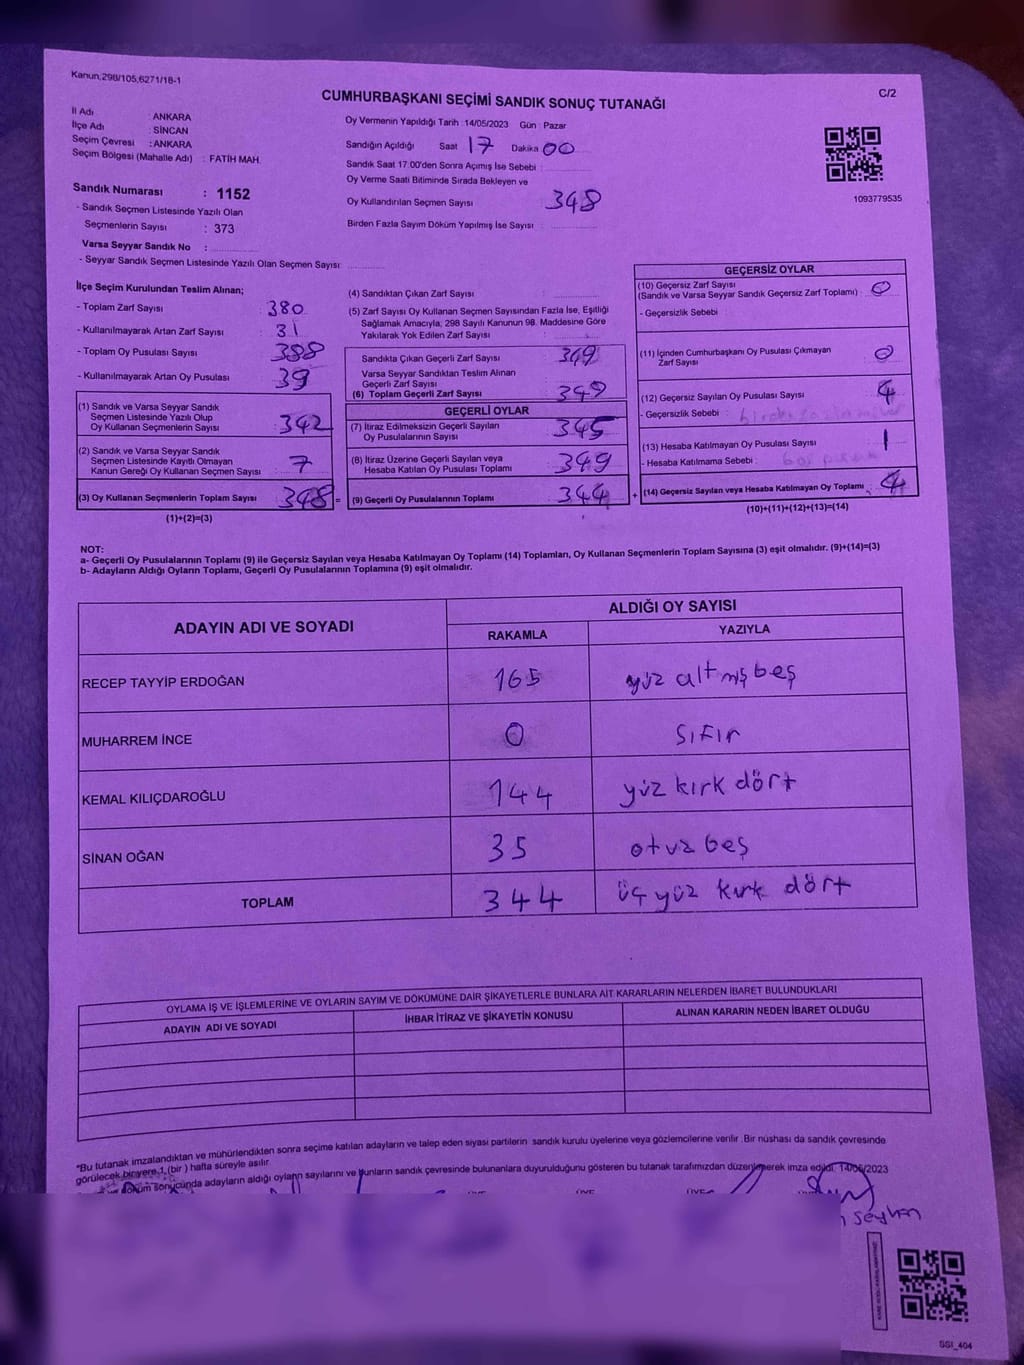 Kanun,298/105,6271/18-1
C/2
CUMHURBAŞKANI SEÇİMİ SANDIK SONUÇ TUTANAĞI
İl Adı : ANKARA
İlçe Adı : SİNCAN
Seçim Çevresi : ANKARA
Seçim Bölgesi (Mahalle Adı) : FATİH MAH.
Sandık Numarası : 1152
- Sandık Seçmen Listesinde Yazılı Olan
Seçmenlerin Sayısı : 373
Varsa Seyyar Sandık No :
- Seyyar Sandık Seçmen Listesinde Yazılı Olan Seçmen Sayısı:
Oy Vermenin Yapıldığı Tarih :14/05/2023 Gün : Pazar
Sandığın Açıldığı Saat 17 Dakika 00
Sandık Saat 17:00'den Sonra Açımış İse Sebebi :
Oy Verme Saati Bitiminde Sırada Bekleyen ve
Oy Kullandırılan Seçmen Sayısı 348
Birden Fazla Sayım Döküm Yapılmış İse Sayısı :
1093779535
İlçe Seçim Kurulundan Teslim Alınan;
- Toplam Zarf Sayısı : 380
- Kullanılmayarak Artan Zarf Sayısı : 31
- Toplam Oy Pusulası Sayısı : 388
- Kullanılmayarak Artan Oy Pusulası : 39
(1) Sandık ve Varsa Seyyar Sandık
Seçmen Listesinde Yazılı Olup
Oy Kullanan Seçmenlerin Sayısı : 342
(2) Sandık ve Varsa Seyyar Sandık
Seçmen Listesinde Kayıtlı Olmayan
Kanun Gereği Oy Kullanan Seçmen Sayısı : 7
(3) Oy Kullanan Seçmenlerin Toplam Sayısı : 348 =
(1)+(2)=(3)
(4) Sandıktan Çıkan Zarf Sayısı :
(5) Zarf Sayısı Oy Kullanan Seçmen Sayısından Fazla İse, Eşitliği
Sağlamak Amacıyla; 298 Sayılı Kanunun 98. Maddesine Göre
Yakılarak Yok Edilen Zarf Sayısı :
Sandıkta Çıkan Geçerli Zarf Sayısı : 349
Varsa Seyyar Sandıktan Teslim Alınan
Geçerli Zarf Sayısı :
(6) Toplam Geçerli Zarf Sayısı : 349
GEÇERLİ OYLAR
(7) İtiraz Edilmeksizin Geçerli Sayılan
Oy Pusulalarının Sayısı : 345
(8) İtiraz Üzerine Geçerli Sayılan veya
Hesaba Katılan Oy Pusulası Toplamı : 349
(9) Geçerli Oy Pusulalarının Toplamı : 344 +
GEÇERSİZ OYLAR
(10) Geçersiz Zarf Sayısı
(Sandık ve Varsa Seyyar Sandık Geçersiz Zarf Toplamı) : 0
- Geçersizlik Sebebi :
(11) İçinden Cumhurbaşkanı Oy Pusulası Çıkmayan
Zarf Sayısı : 0
(12) Geçersiz Sayılan Oy Pusulası Sayısı : 4
- Geçersizlik Sebebi :
(13) Hesaba Katılmayan Oy Pusulası Sayısı : 1
- Hesaba Katılmama Sebebi :
(14) Geçersiz Sayılan veya Hesaba Katılmayan Oy Toplamı : 4
(10)+(11)+(12)+(13)=(14)
NOT:
a- Geçerli Oy Pusulalarının Toplamı (9) ile Geçersiz Sayılan veya Hesaba Katılmayan Oy Toplamı (14) Toplamları, Oy Kullanan Seçmenlerin Toplam Sayısına (3) eşit olmalıdır. (9)+(14)=(3)
b- Adayların Aldığı Oyların Toplamı, Geçerli Oy Pusulalarının Toplamına (9) eşit olmalıdır.
ADAYIN ADI VE SOYADI
ALDIĞI OY SAYISI
RAKAMLA YAZIYLA
RECEP TAYYİP ERDOĞAN 165 yüz altmış beş
MUHARREM İNCE 0 sıfır
KEMAL KILIÇDAROĞLU 144 yüz kırk dört
SİNAN OĞAN 35 otuz beş
TOPLAM 344 üç yüz kırk dört
OYLAMA İŞ VE İŞLEMLERİNE VE OYLARIN SAYIM VE DÖKÜMÜNE DAİR ŞİKAYETLERLE BUNLARA AİT KARARLARIN NELERDEN İBARET BULUNDUKLARI
ADAYIN ADI VE SOYADI
İHBAR İTİRAZ VE ŞİKAYETİN KONUSU
ALINAN KARARIN NEDEN İBARET OLDUĞU
"Bu tutanak imzalandıktan ve mühürlendikten sonra seçime katılan adayların ve talep eden siyasi partilerin sandık kurulu üyelerine veya gözlemcilerine verilir .Bir nüshası da sandık çevresinde
görülecek bir yere 1 (bir ) hafta süreyle asılır.
döküm sonucunda adayların aldığı oyların sayılarını ve bunların sandık çevresinde bulunanlara duyurulduğunu gösteren bu tutanak tarafımızdan düzenlenerek imza edildi. 14/05/2023
ÜYE ÜYE ÜYE
Seyhan
SSI_404